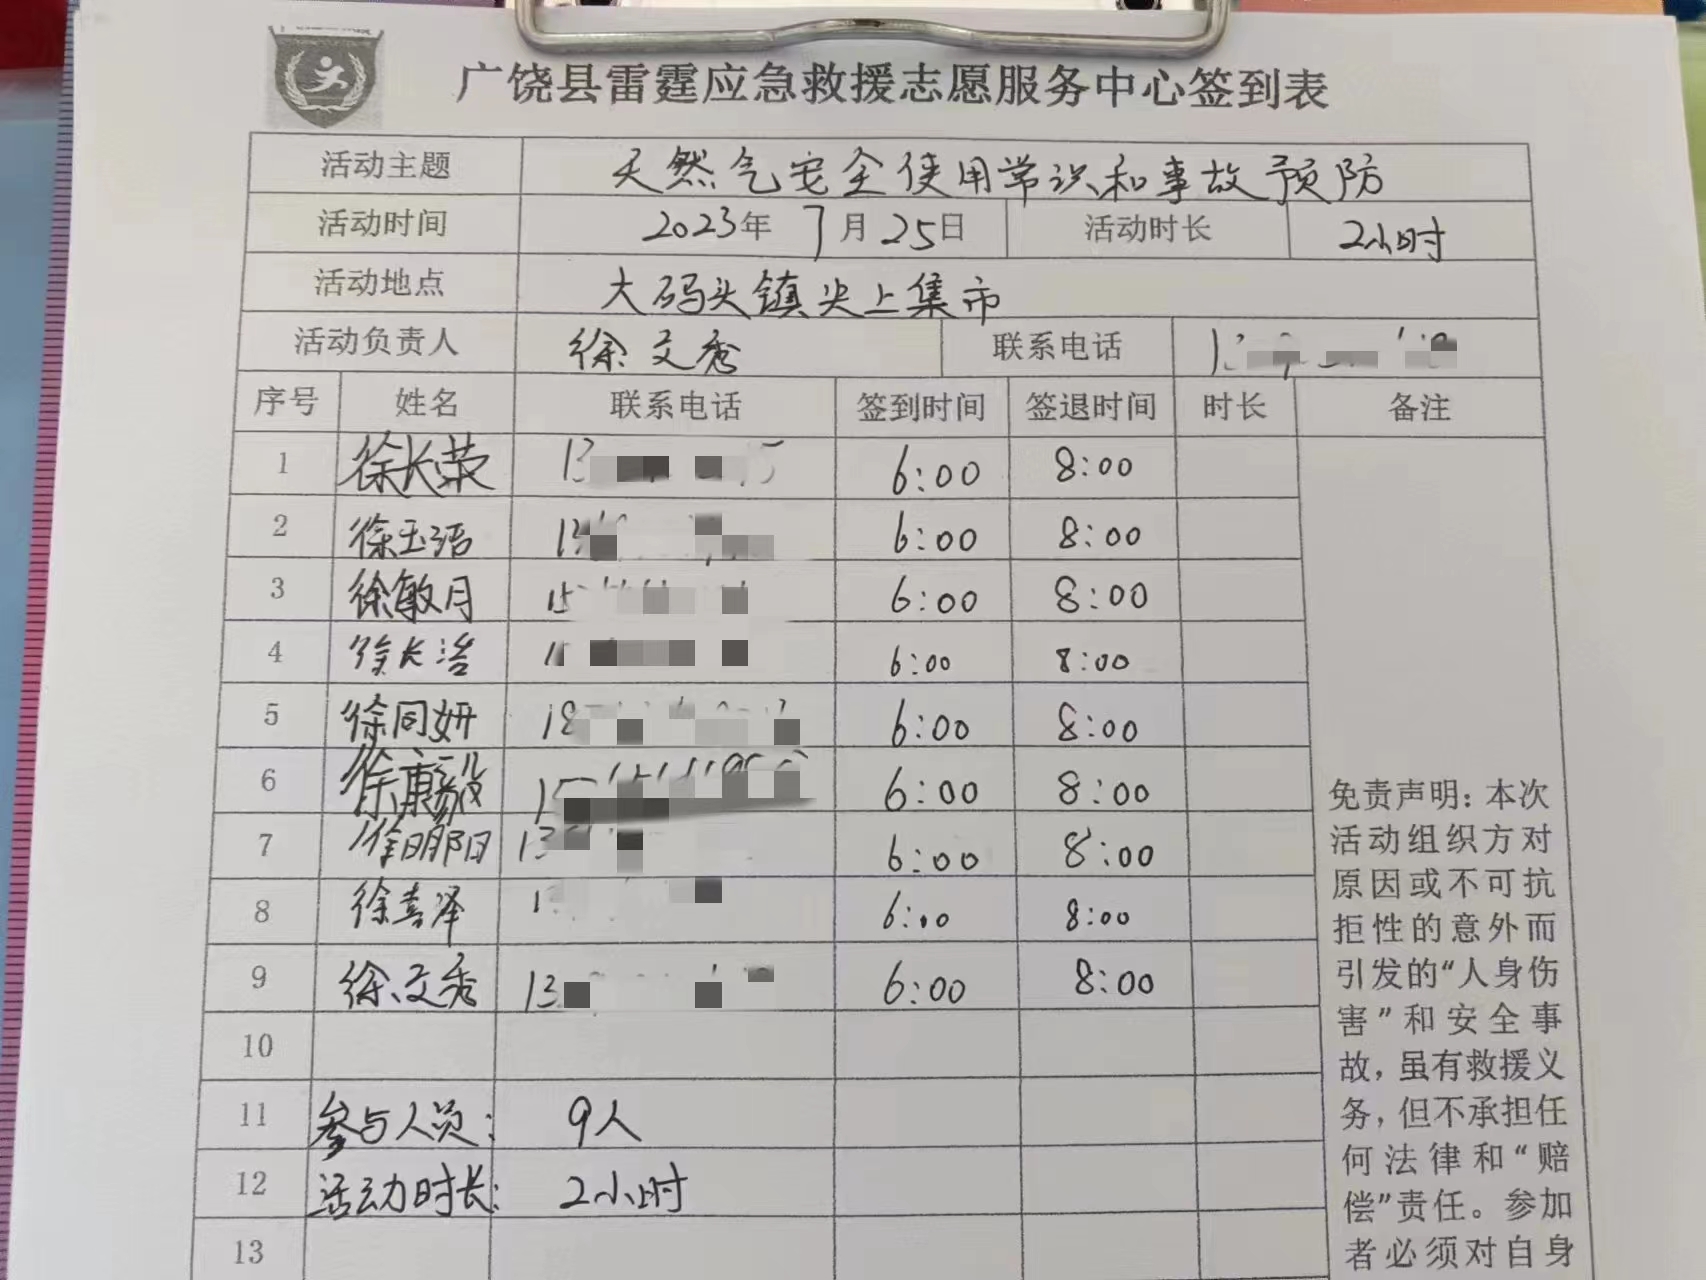 广饶县雷霆应急救援志愿服务中心签到表
活动主题 天然气安全使用常识和事故预防
活动时间 2023年 7月25日 活动时长 2小时
活动地点 大码头镇尖上集市
活动负责人 徐文秀 联系电话
序号 姓名 联系电话 签到时间 签退时间 时长 备注
1 徐长荣 13 6:00 8:00
2 徐玉洁 13 6:00 8:00
3 徐敏月 15 6:00 8:00
4 徐长浩 6:00 8:00
5 徐同妍 18 6:00 8:00
6 徐康毅 15 6:00 8:00
7 徐明阳 13 6:00 8:00
8 徐喜泽 6:00 8:00
9 徐文秀 13 6:00 8:00
10
11 参与人员: 9人
12 活动时长: 2小时
13
免责声明：本次
活动组织方对
原因或不可抗
拒性的意外而
引发的“人身伤
害”和安全事
故，虽有救援义
务，但不承担任
何法律和“赔
偿”责任。参加
者必须对自身